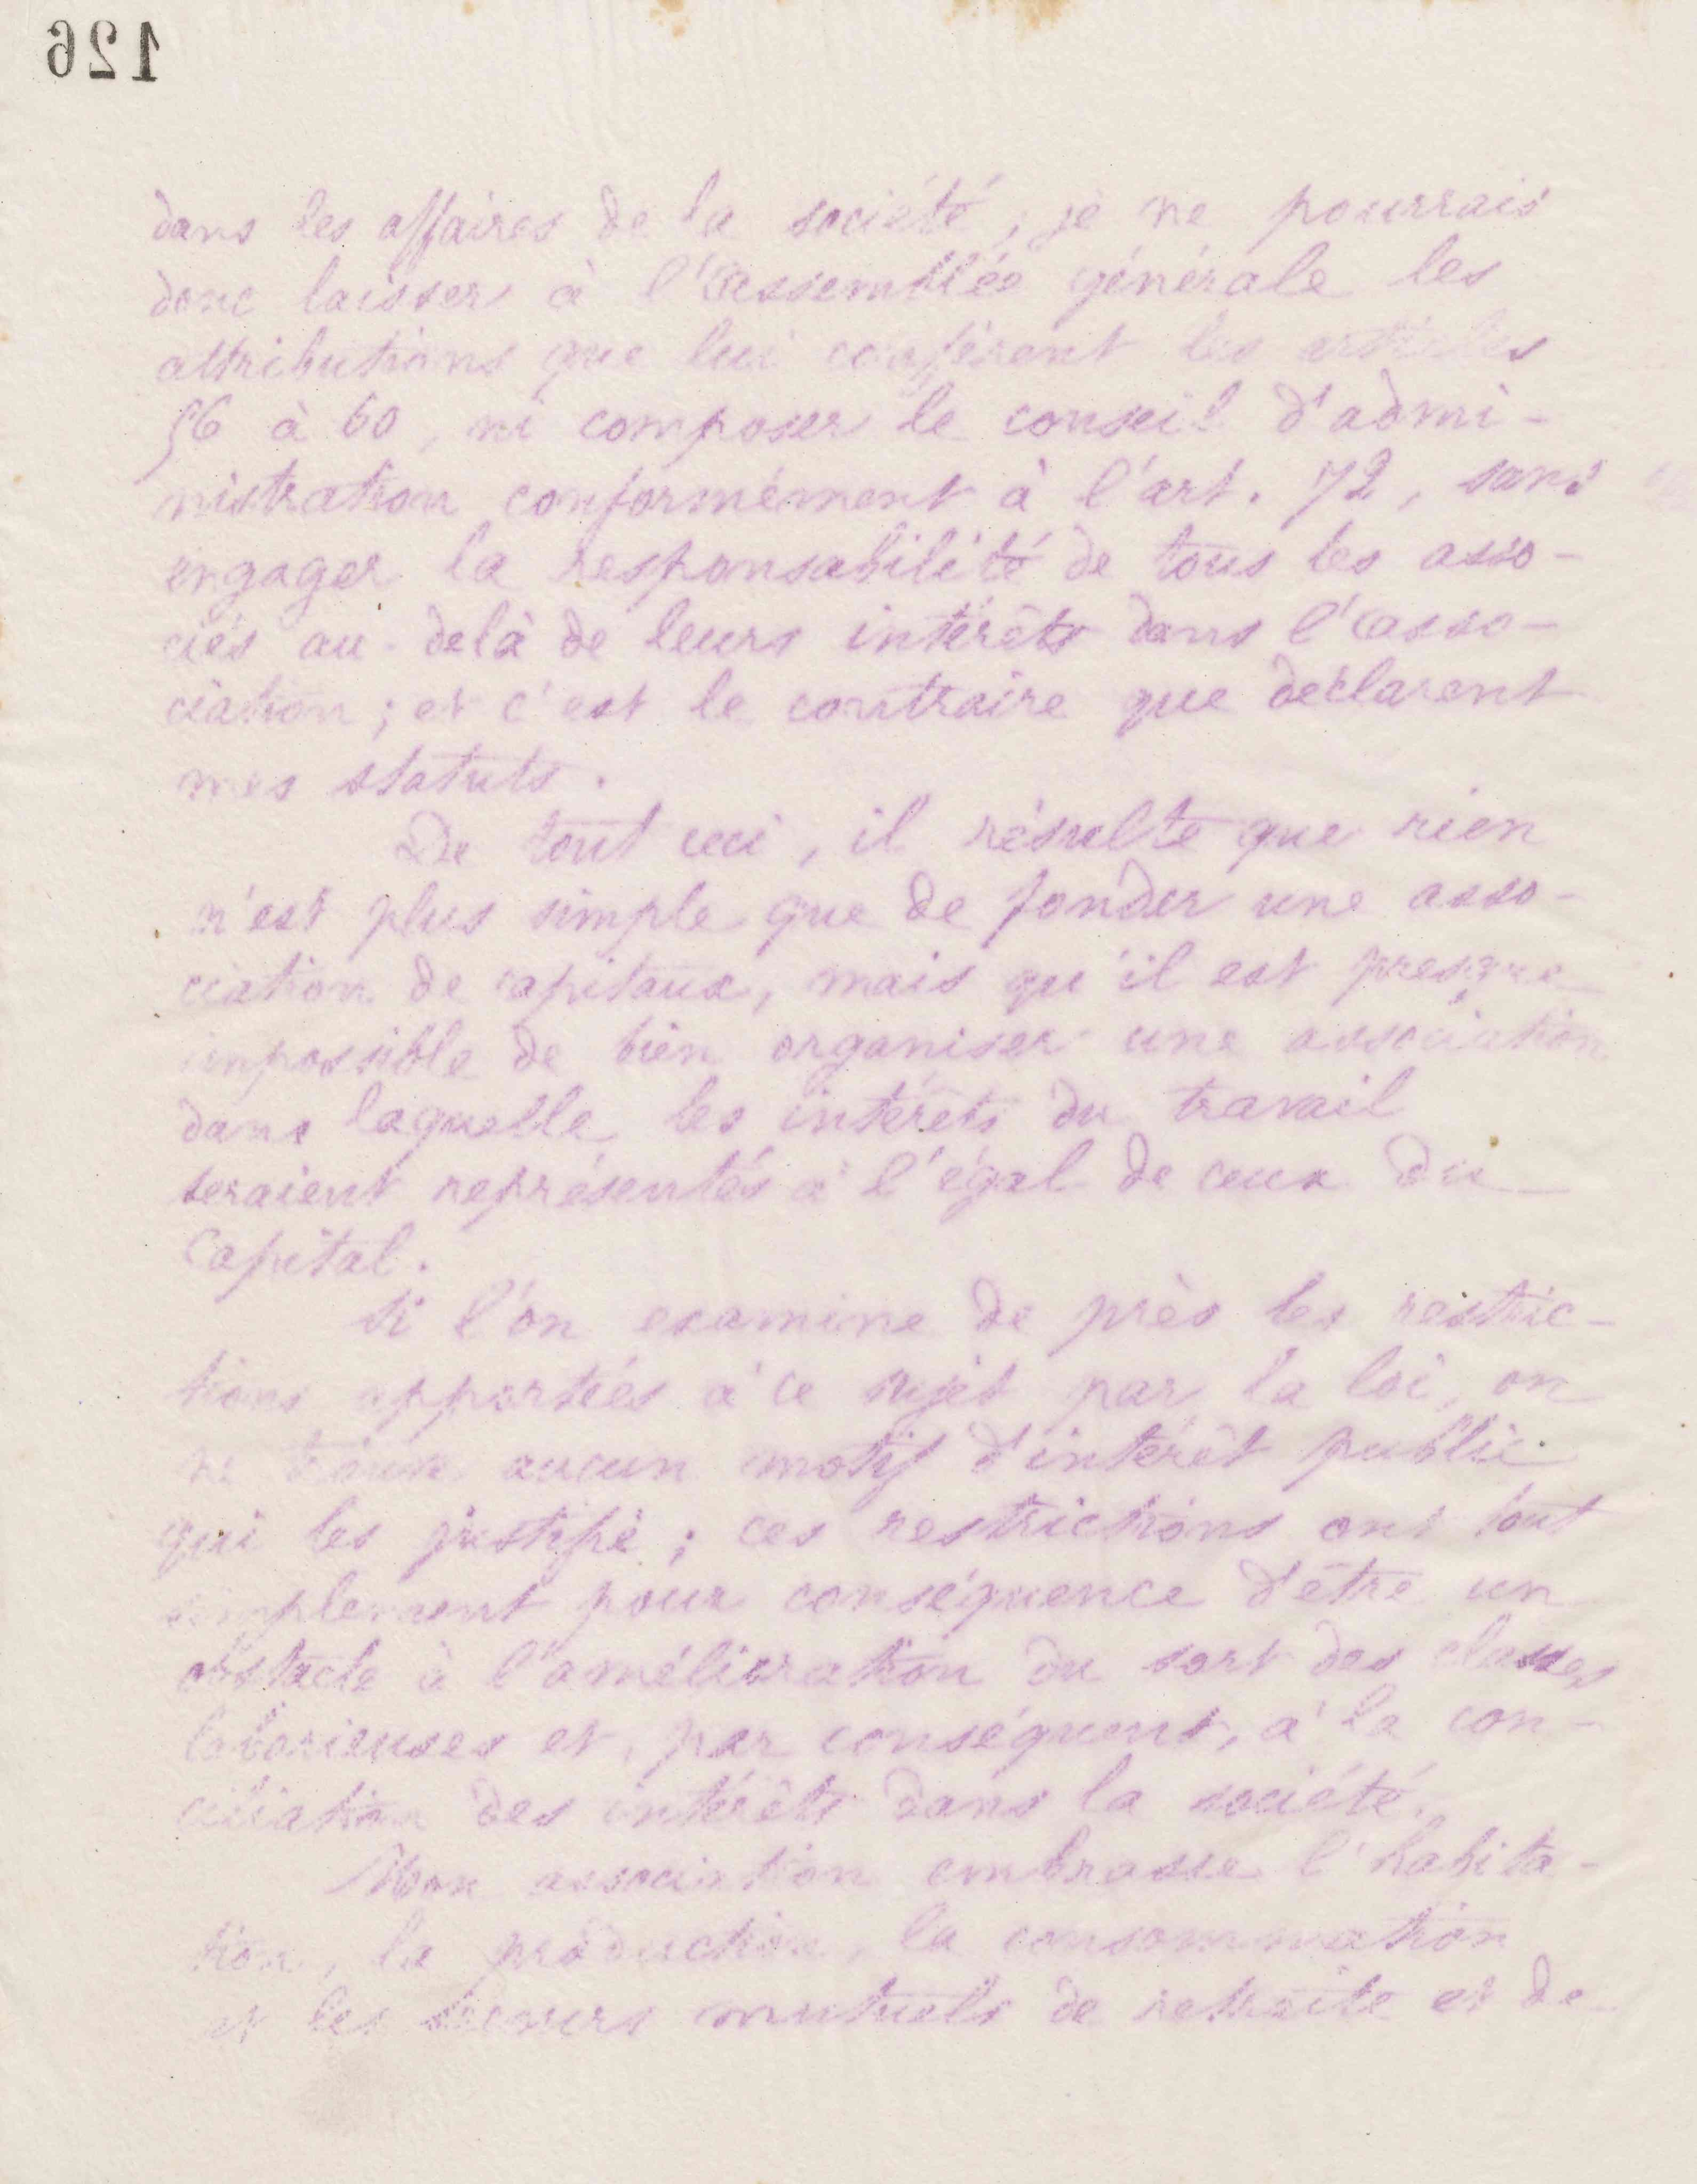 126
dans les affaires de la société, je ne pourrais
donc laisser à l'assemblée générale les
attributions que lui confèrent les articles
56 à 60, ni composer le conseil d'admi-
nistration conformément à l'art. 72, sans
engager la responsabilité de tous les asso-
ciés au-delà de leurs intérêts dans l'asso-
ciation ; et c'est le contraire que déclarent
mes statuts.
De tout ceci, il résulte que rien
n'est plus simple que de fonder une asso-
ciation de capitaux, mais qu'il est presque
impossible de bien organiser une association
dans laquelle les intérêts du travail
seraient représentés à l'égal de ceux du
Capital.
Si l'on examine de près les restric-
tions apportées à ce sujet par la loi, on
ne trouve aucun motif d'intérêt public
qui les justifie ; ces restrictions ont tout
simplement pour conséquence d'être un
obstacle à l'amélioration du sort des classes
laborieuses et, par conséquent, à la con-
ciliation des intérêts dans la société.
Mon association embrasse l'habita-
tion, la production, la consommation
et les secours mutuels de retraite et de